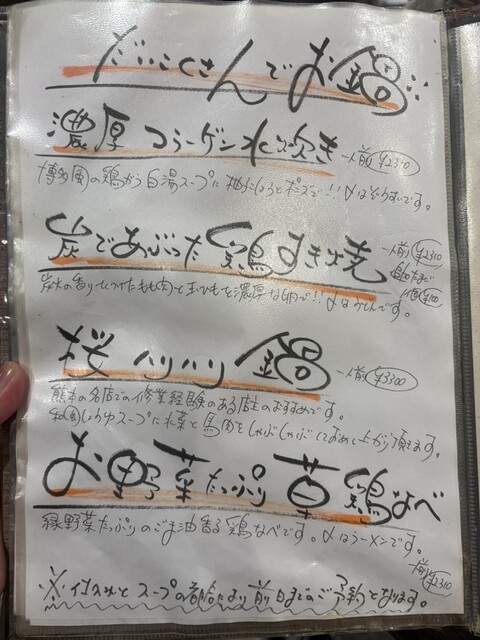 だいこくさんでお鍋
濃厚コラーゲン水炊き 一人前 ¥2310
博多風の鶏がら白湯スープに柚子こしょうとポン酢で!!〆はぞうすいです。
炭であぶった鶏すき焼 一人前 ¥2310
炭火の香りをつけたもも肉と玉ひもを濃厚な卵で!!〆はうどんです。
1個 ¥100
桜ハリハリ鍋 一人前 ¥3300
熊本の名店での修業経験のある店主のおすすめです。
和風しょうゆスープに水菜と馬肉をしゃぶしゃぶしてお召し上がり頂きます。
お野菜たっぷり草鶏なべ
緑野菜たっぷりのごま油香る鶏なべです。〆はラーメンです。
一人前 ¥2310
※仕入れとスープの都合により前日までのご予約となります。